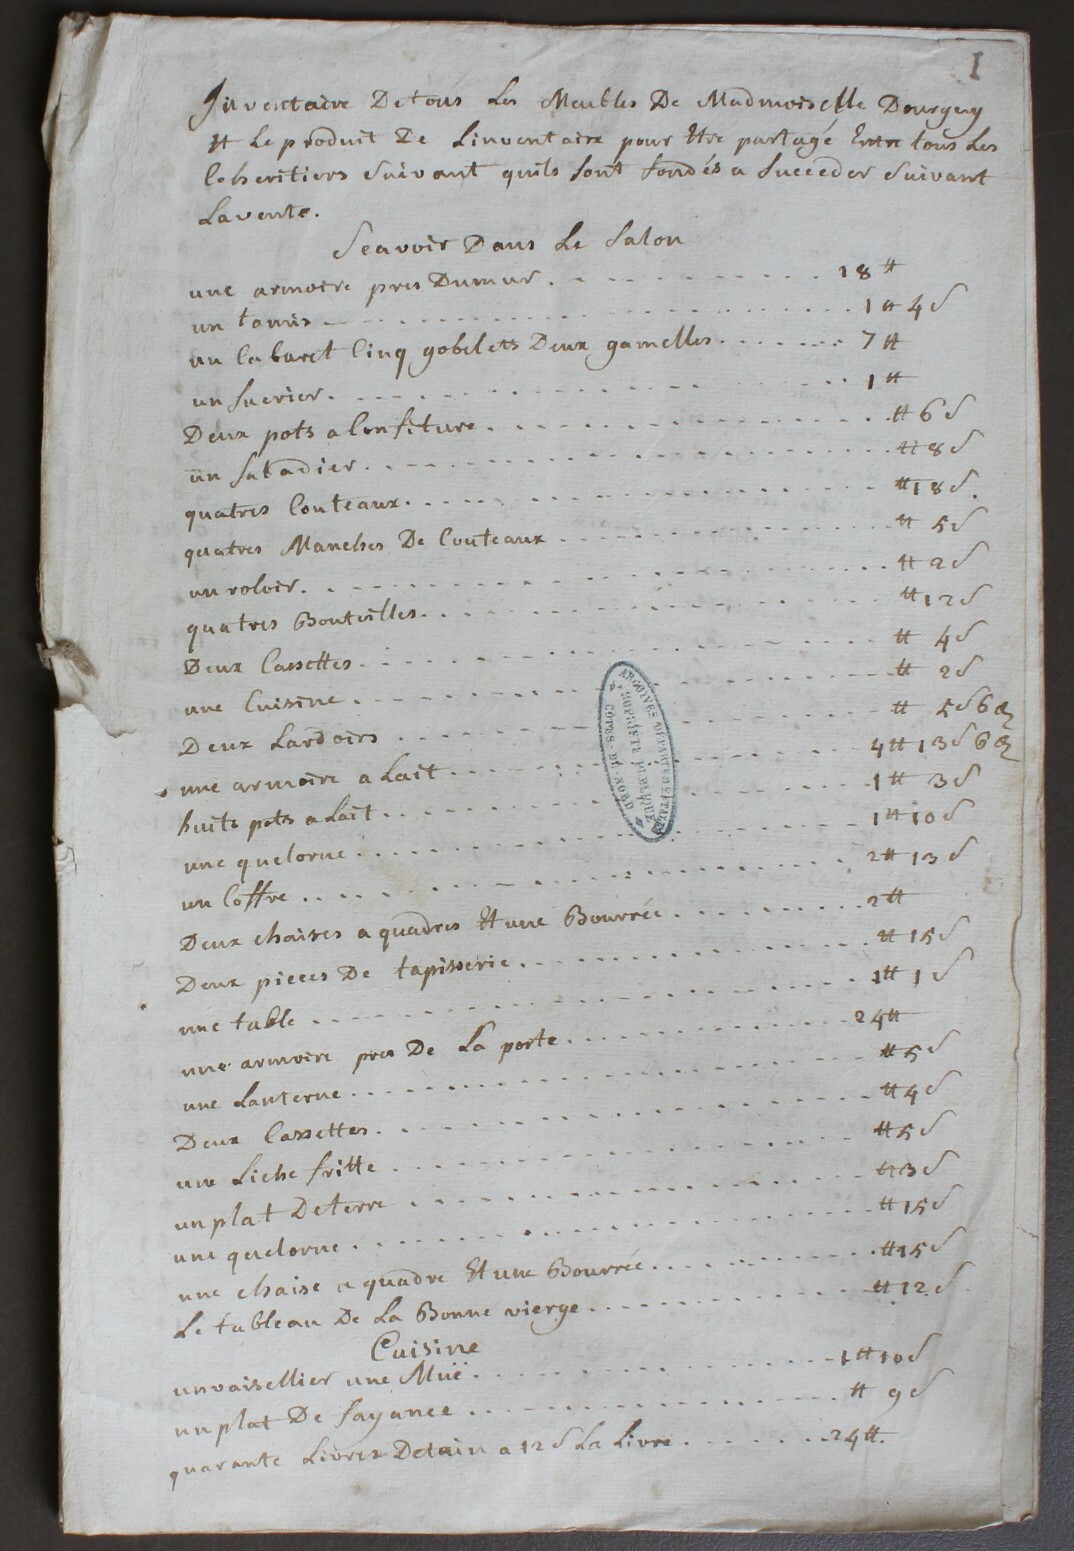 1
Inventaire De tous Les Meubles De Madmoiselle Dourgeng
Et Le produit De Linventaire pour Etre partagé Entre tous Les
Coheritiers Suivant quils sont fondés a Succeder Suivant
La vente.
Scavoir Dans Le Salon
une armoire pres Dumur . . . . 18 ₶
un tamis . . . . 1 ₶ 4 s
un Cabaret Cinq gobelets Deux gamelles . . . . 7 ₶
un sucrier . . . . 1 ₶
Deux pots a Confiture . . . . ₶ 6 s
un Saladier . . . . ₶ 8 s
quatres Couteaux . . . . ₶ 18 s.
quatres Manches De Couteaux . . . . ₶ 5 s
un . . . . ₶ 2 s
quatres Bouteilles . . . . ₶ 12 s
Deux Cassettes . . . . ₶ 4 s
une Cuisine . . . . ₶ 2 s
Deux Lardoirs . . . . ₶ 5 s 6 d
une armoire a Lait . . . . 4 ₶ 13 s 6 d
huits pots a Lait . . . . 1 ₶ 3 s
une quelorne . . . . 1 ₶ 10 s
un Coffre . . . . 2 ₶ 13 s
Deux chaises a quadres Et une Bourrée . . . . 2 ₶
Deux pieces De tapisserie . . . . ₶ 15 s
une table . . . . 1 ₶ 1 s
une armoire pres De La porte . . . . 24 ₶
une Lanterne . . . . ₶ 5 s
Deux Cassettes . . . . ₶ 4 s
une Liche fritte . . . . ₶ 5 s
un plat De terre . . . . ₶ 3 s
une quelorne . . . . ₶ 15 s
une chaise a quadre Et une Bourrée . . . . ₶ 15 s
Le tableau De La Bonne vierge . . . . ₶ 12 s
Cuisine
un vaisellier une Muë . . . . 1 ₶ 10 s
un plat De fayance . . . . ₶ 9 s
quarante Livres Detain a 12 s La Livre . . . . 24 ₶.
ARCHIVES DÉPARTEMENTALES
COTES-DU-NORD